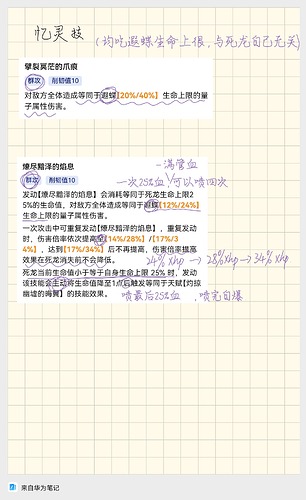 忆灵技
(均吃遐蝶生命上限,与死龙自己无关)
擘裂冥茫的爪痕
群攻 削韧值10
对敌方全体造成等同于遐蝶【20%/40%】生命上限的量
子属性伤害。
一满管血
燎尽黯泽的焰息
一次25%血 可以喷四次
群攻 削韧值10
发动【燎尽黯泽的焰息】会消耗等同于死龙生命上限2
5%的生命值,对敌方全体造成等同于遐蝶【12%/24%】
生命上限的量子属性伤害。
一次攻击中可重复发动【燎尽黯泽的焰息】,重复发动
时,伤害倍率依次提高至【14%/28%】/【17%/3
4%】,达到【17%/34%】后不再提高,伤害倍率提高
效果在死龙消失前不会降低。
24%xhp → 28%xhp → 34%xhp
死龙当前生命值小于等于自身生命上限 25% 时,发动
该技能会主动将生命值降至1点后触发等同于天赋【灼掠
幽墟的晦翼】的技能效果。
喷最后25%血,喷完自爆
来自华为笔记